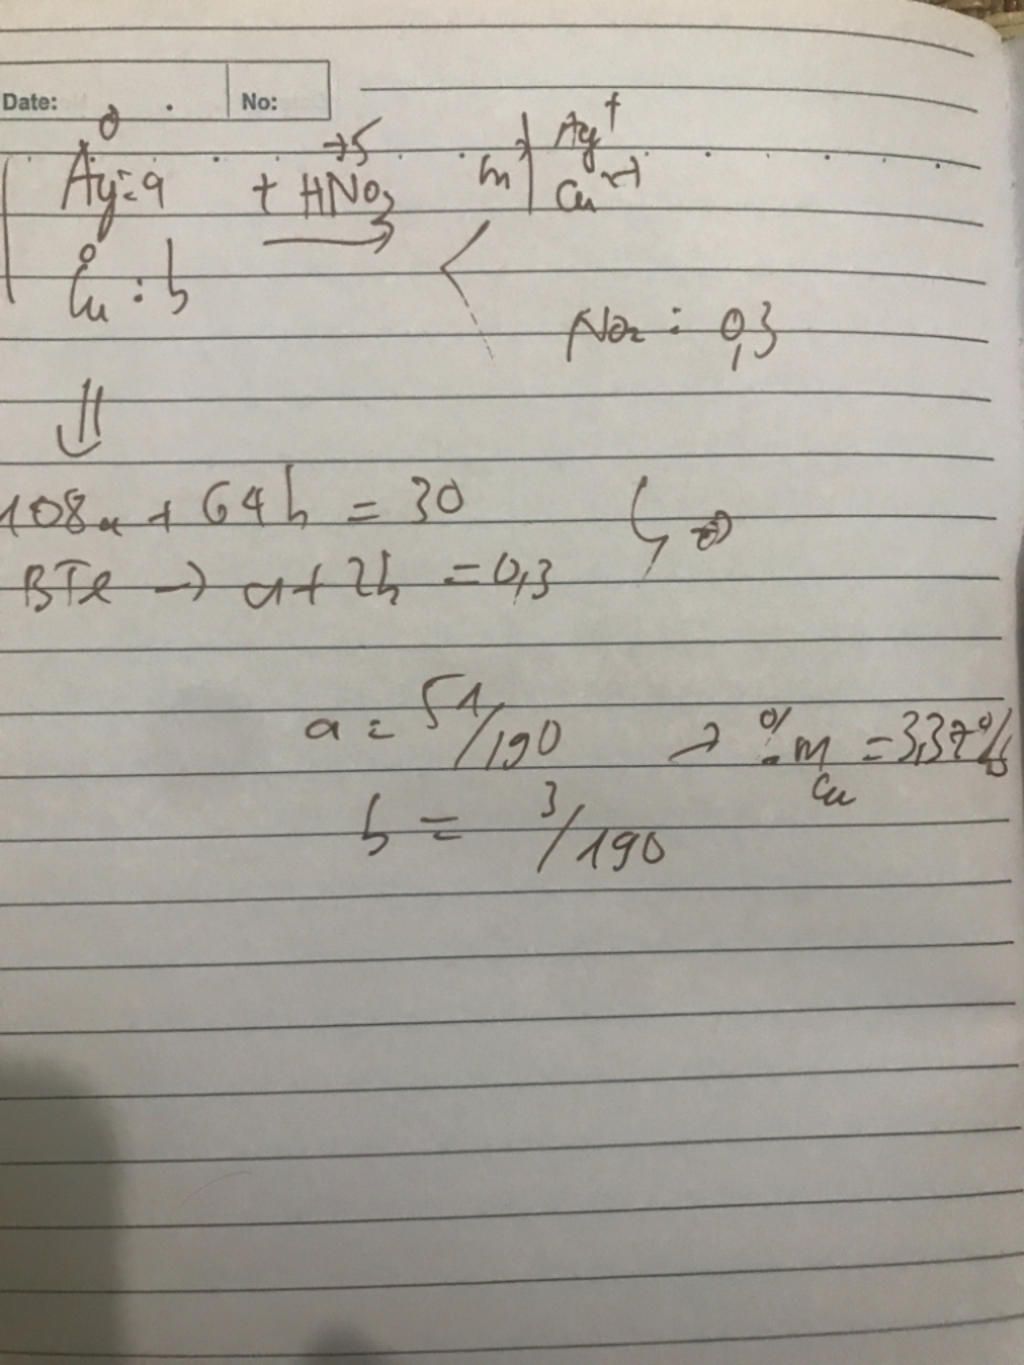 Date: No:
0 +5 Ag+
Ag: a + HNO3 m Cu2+
0
Cu : b
NO2 : 0,3
108a + 64b = 30
BTe → a + 2b = 0,3
a = 51/190 → %m Cu = 3,37%
b = 3/190